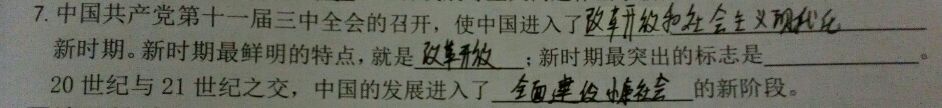 7. 中国共产党第十一届三中全会的召开，使中国进入了改革开放和社会主义现代化
新时期。新时期最鲜明的特点，就是改革开放；新时期最突出的标志是________。
20世纪与21世纪之交，中国的发展进入了全面建设小康社会的新阶段。